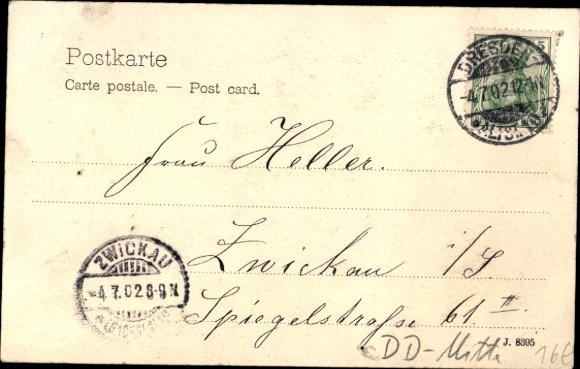 Postkarte
Carte postale. — Post card.
5
DRESDEN
-4.7.02.12-
ALTST.
Frau Heller.
Zwickau i/S
Spiegelstraße 61 II.
ZWICKAU
-4.7.02 8-9 N
DD-Mitte
J. 8395
16€